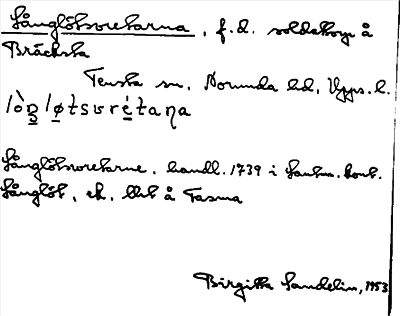 Långlötsvretarna, f.d. soldattorp å
Bräcksta
Tensta sn, Norunda hd, Upps. l.
Långlötsvretarne, handl. 1739 i Lantm. kont.
Långlöt, ek. bl. å Tasma
Birgitta Sandelin, 1953